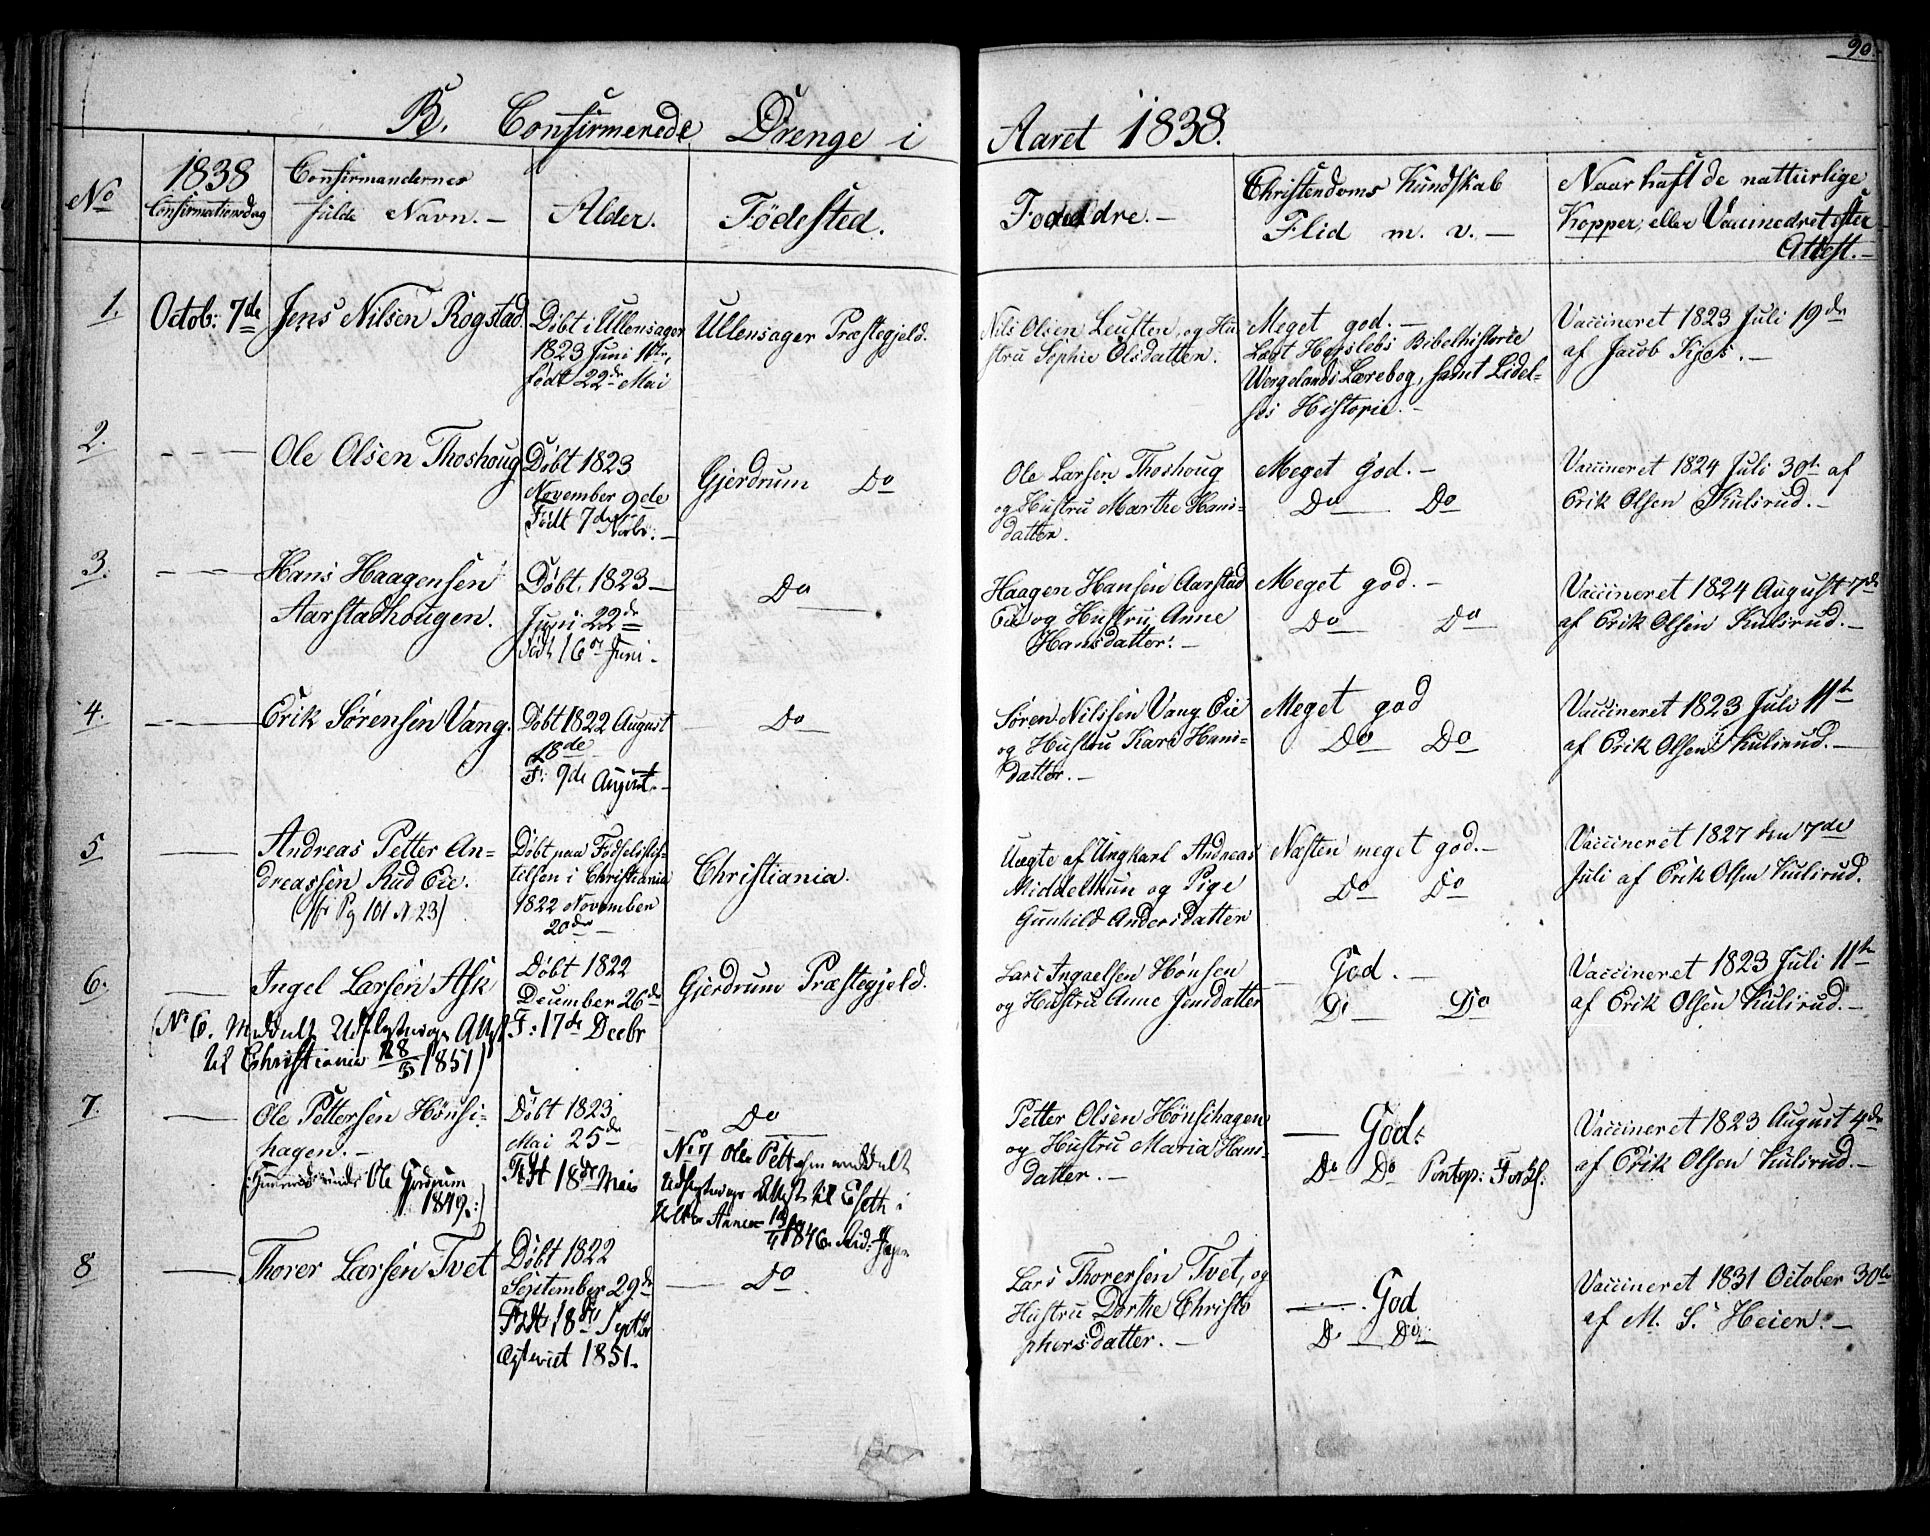 90.
B. Confirmerede Drenge i Aaret 1838.
No
1838 Confirmationsdag
Confirmandernes fulde Navn. –
Alder.
Födested.
Forældre. –
Christendoms Kundskab Flid m. v. –
Naar haft de natturlige Kopper, eller Vaccineret efter Attest. –
1.
Octob: 7de
Jens Nilsen Rogstad
Döbt i Ullensager
1823 Juni 1te,
födt 22de Mai
Ullensager Præstegjeld.
Nils Olsen Leusten, og Hu
stru Sophie Olsdatter.
Meget god. –
Læst Herslebs Bibelhistorie
Wergelands Lærebog, samt Lidel-
ses Historie. –
Vaccineret 1823 Juli 19de
af Jacob Kjos. –
2.
Ole Olsen Thoshoug
Döbt 1823
November 9de
Födt 7de Novbr. –
Gjerdrum Do
Ole Larsen Thoshoug
og Hustru Marthe Hans-
datter.
Meget god. –
Do Do
Vaccineret 1824 Juli 30te af
Erik Olsen Kulsrud. –
3.
Hans Haagensen
Aarstadhougen.
Döbt. 1823 –
Juni 22de
Födt 16de Juni.
Do
Haagen Hansen Aarstad
Eie og Hustru Anne
Hansdatter. –
Meget god. –
Do Do
Vaccineret 1824 August 7de
af Erik Olsen Kulsrud. –
4.
Erik Sörensen Vang.
Döbt 1822 August
18de
F: 9de August. –
Do
Sören Nilssen Vang Eie
og Hustru Kari Hans-
datter. –
Meget god
Do Do
Vaccineret 1823 Juli 11te
af Erik Olsen Kulsrud. –
5
Andreas Petter An-
dreassen Rud Eie.
Pg 101 N 23)
Döbt paa Födselsstif-
telsen i Christiania
1822 November
20de
Christiania.
Uægte af Ungkarl Andreas
Middelthun og Pige
Gunhild Andersdatter
Næsten meget god. –
Do Do
Vaccineret 1827 den 7de
Juli af Erik Olsen Kulsrud.
6.
Ingel Larsen Ask
(No 6. Meddelt Udflytnings Attest
til Christiania 1851)
Döbt 1822
December 26de
F: 17de Decbr
Gjerdrum Præstegjeld.
Lars Ingaelsen Hönsen
og Hustru Anne Jensdatter
God. –
Do Do
Vaccineret 1823 Juli 11te
af Erik Olsen Kulsrud. –
7.
Ole Pettersen Hönsi-
hagen. –
Ole Gjerdrum
1849.)
Döbt 1823
Mai 25de
Födt 18de Mai
Do
No 7 Ole Pettersen meddelt
Udflytnings Attest til
1846.
Petter Olsen Hönsihagen
og Hustru Maria Hans-
datter. –
God.
Do Do Pontop: Forkl:
Vaccineret 1823 August 4de
af Erik Olsen Kulsrud. –
8
Thorer Larsen Tvet
Döbt 1822
September 29de
Födt 18de Septbr
1851.
Do
Lars Thorersen Tvet, og
Hustru Dorthe Christo
phersdatter. –
God
Do Do
Vaccineret 1831 October 30te
af M. S. Heien. –